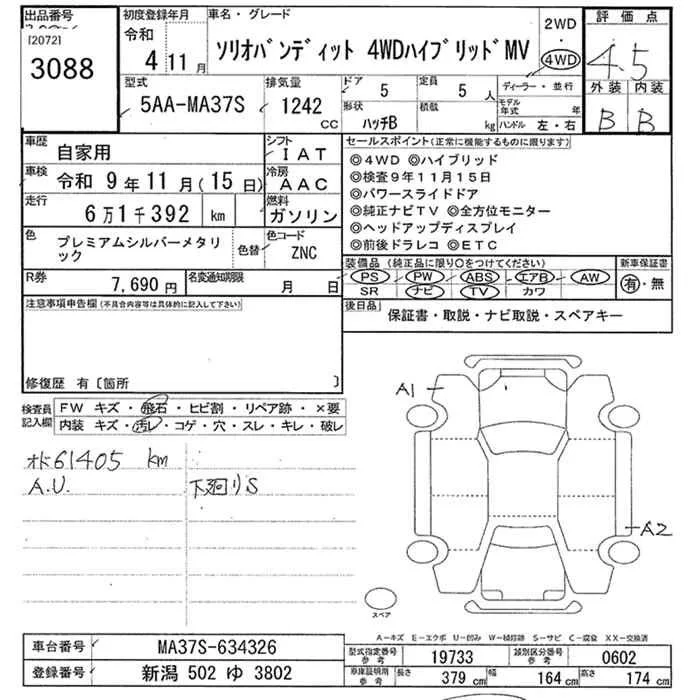 出品番号
[2072]
3088
初度登録年月
令和
4 11月
車名・グレード
ソリオバンディット 4WDハイブリッドMV
2WD
・
4WD
評価点
4.5
外装 内装
B B
型式
5AA-MA37S
排気量
1242
CC
ドア
5
定員
5人
形状
ハッチB
積載
kg
ディーラー・並行
モデル年式 年
ハンドル 左・右
車歴
自家用
シフト
IAT
車検
令和 9年11月(15日)
冷房
AAC
走行
6万1千392 km
燃料
ガソリン
色
プレミアムシルバーメタリック
色替
色コード
ZNC
R券
7,690円
名変通知期限
月 日
セールスポイント(正常に機能するものに限ります)
◎4WD ◎ハイブリッド
◎検査9年11月15日
◎パワースライドドア
◎純正ナビTV ◎全方位モニター
◎ヘッドアップディスプレイ
◎前後ドラレコ ◎ETC
装備品(純正品に限り○をつけてください)
PS PW ABS エアB AW
SR ナビ TV カワ
新車保証書
有・無
後日品
保証書・取説・ナビ取説・スペアキー
注意事項申告欄(不具合内容等は具体的に記入して下さい)
修復歴 有〔箇所 〕
検査員記入欄
FW キズ・飛石・ヒビ割・リペア跡・×要
内装 キズ・汚レ・コゲ・穴・スレ・キレ・破レ
61405 km
A.U. 下廻りS
A1
A2
スペア
A－キズ E－エクボ U－凹み W－補修跡 S－サビ C－腐食 XX－交換済
車台番号
MA37S-634326
登録番号
新潟 502 ゆ 3802
型式指定番号
参考
19733
類別区分番号
参考
0602
車庫証明用
参考
長さ 379 cm
幅 164 cm
高さ 174 cm